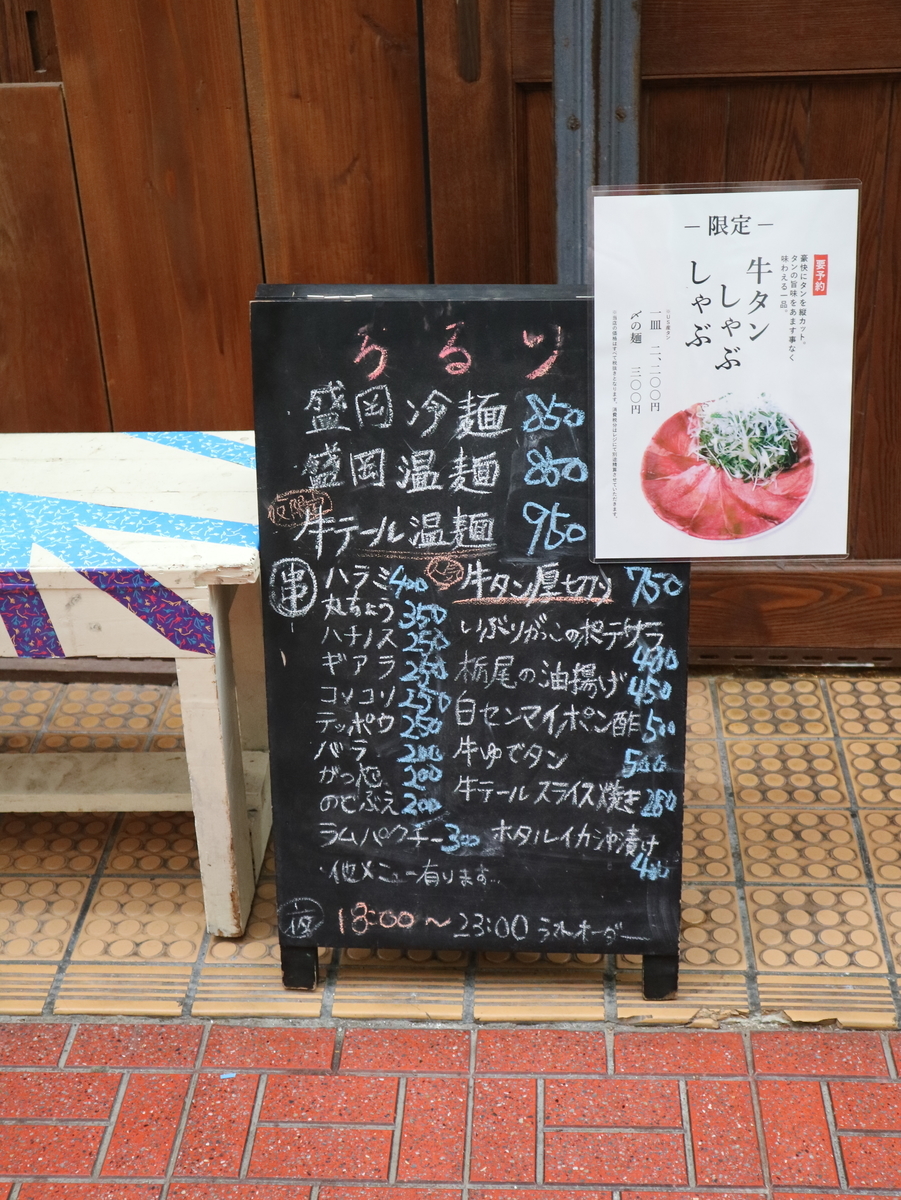 うるり
盛岡冷麺 850
盛岡温麺 850
夜限定
牛テール温麺 950
串
ハラミ 400
丸ちょう 350
ハチノス 250
ギアラ 250
コリコリ 250
テッポウ 250
バラ 200
がつ芯 200
のどぶえ 200
ラムパクチー 300
人気
牛タン厚切り 750
いぶりがっこのポテサラ 400
栃尾の油揚げ 450
白センマイポン酢 500
牛ゆでタン 500
牛テールスライス焼き 250
ホタルイカ沖漬け 400
・他メニュー有ります…
夜 18:00〜23:00 ラストオーダー
－限定－
要予約
豪快にタンを縦カット。
タンの旨味をあます事なく
味わえる一品。
牛タン
しゃぶ
しゃぶ
※US産タン
一皿 二、二〇〇円
〆の麺 三〇〇円